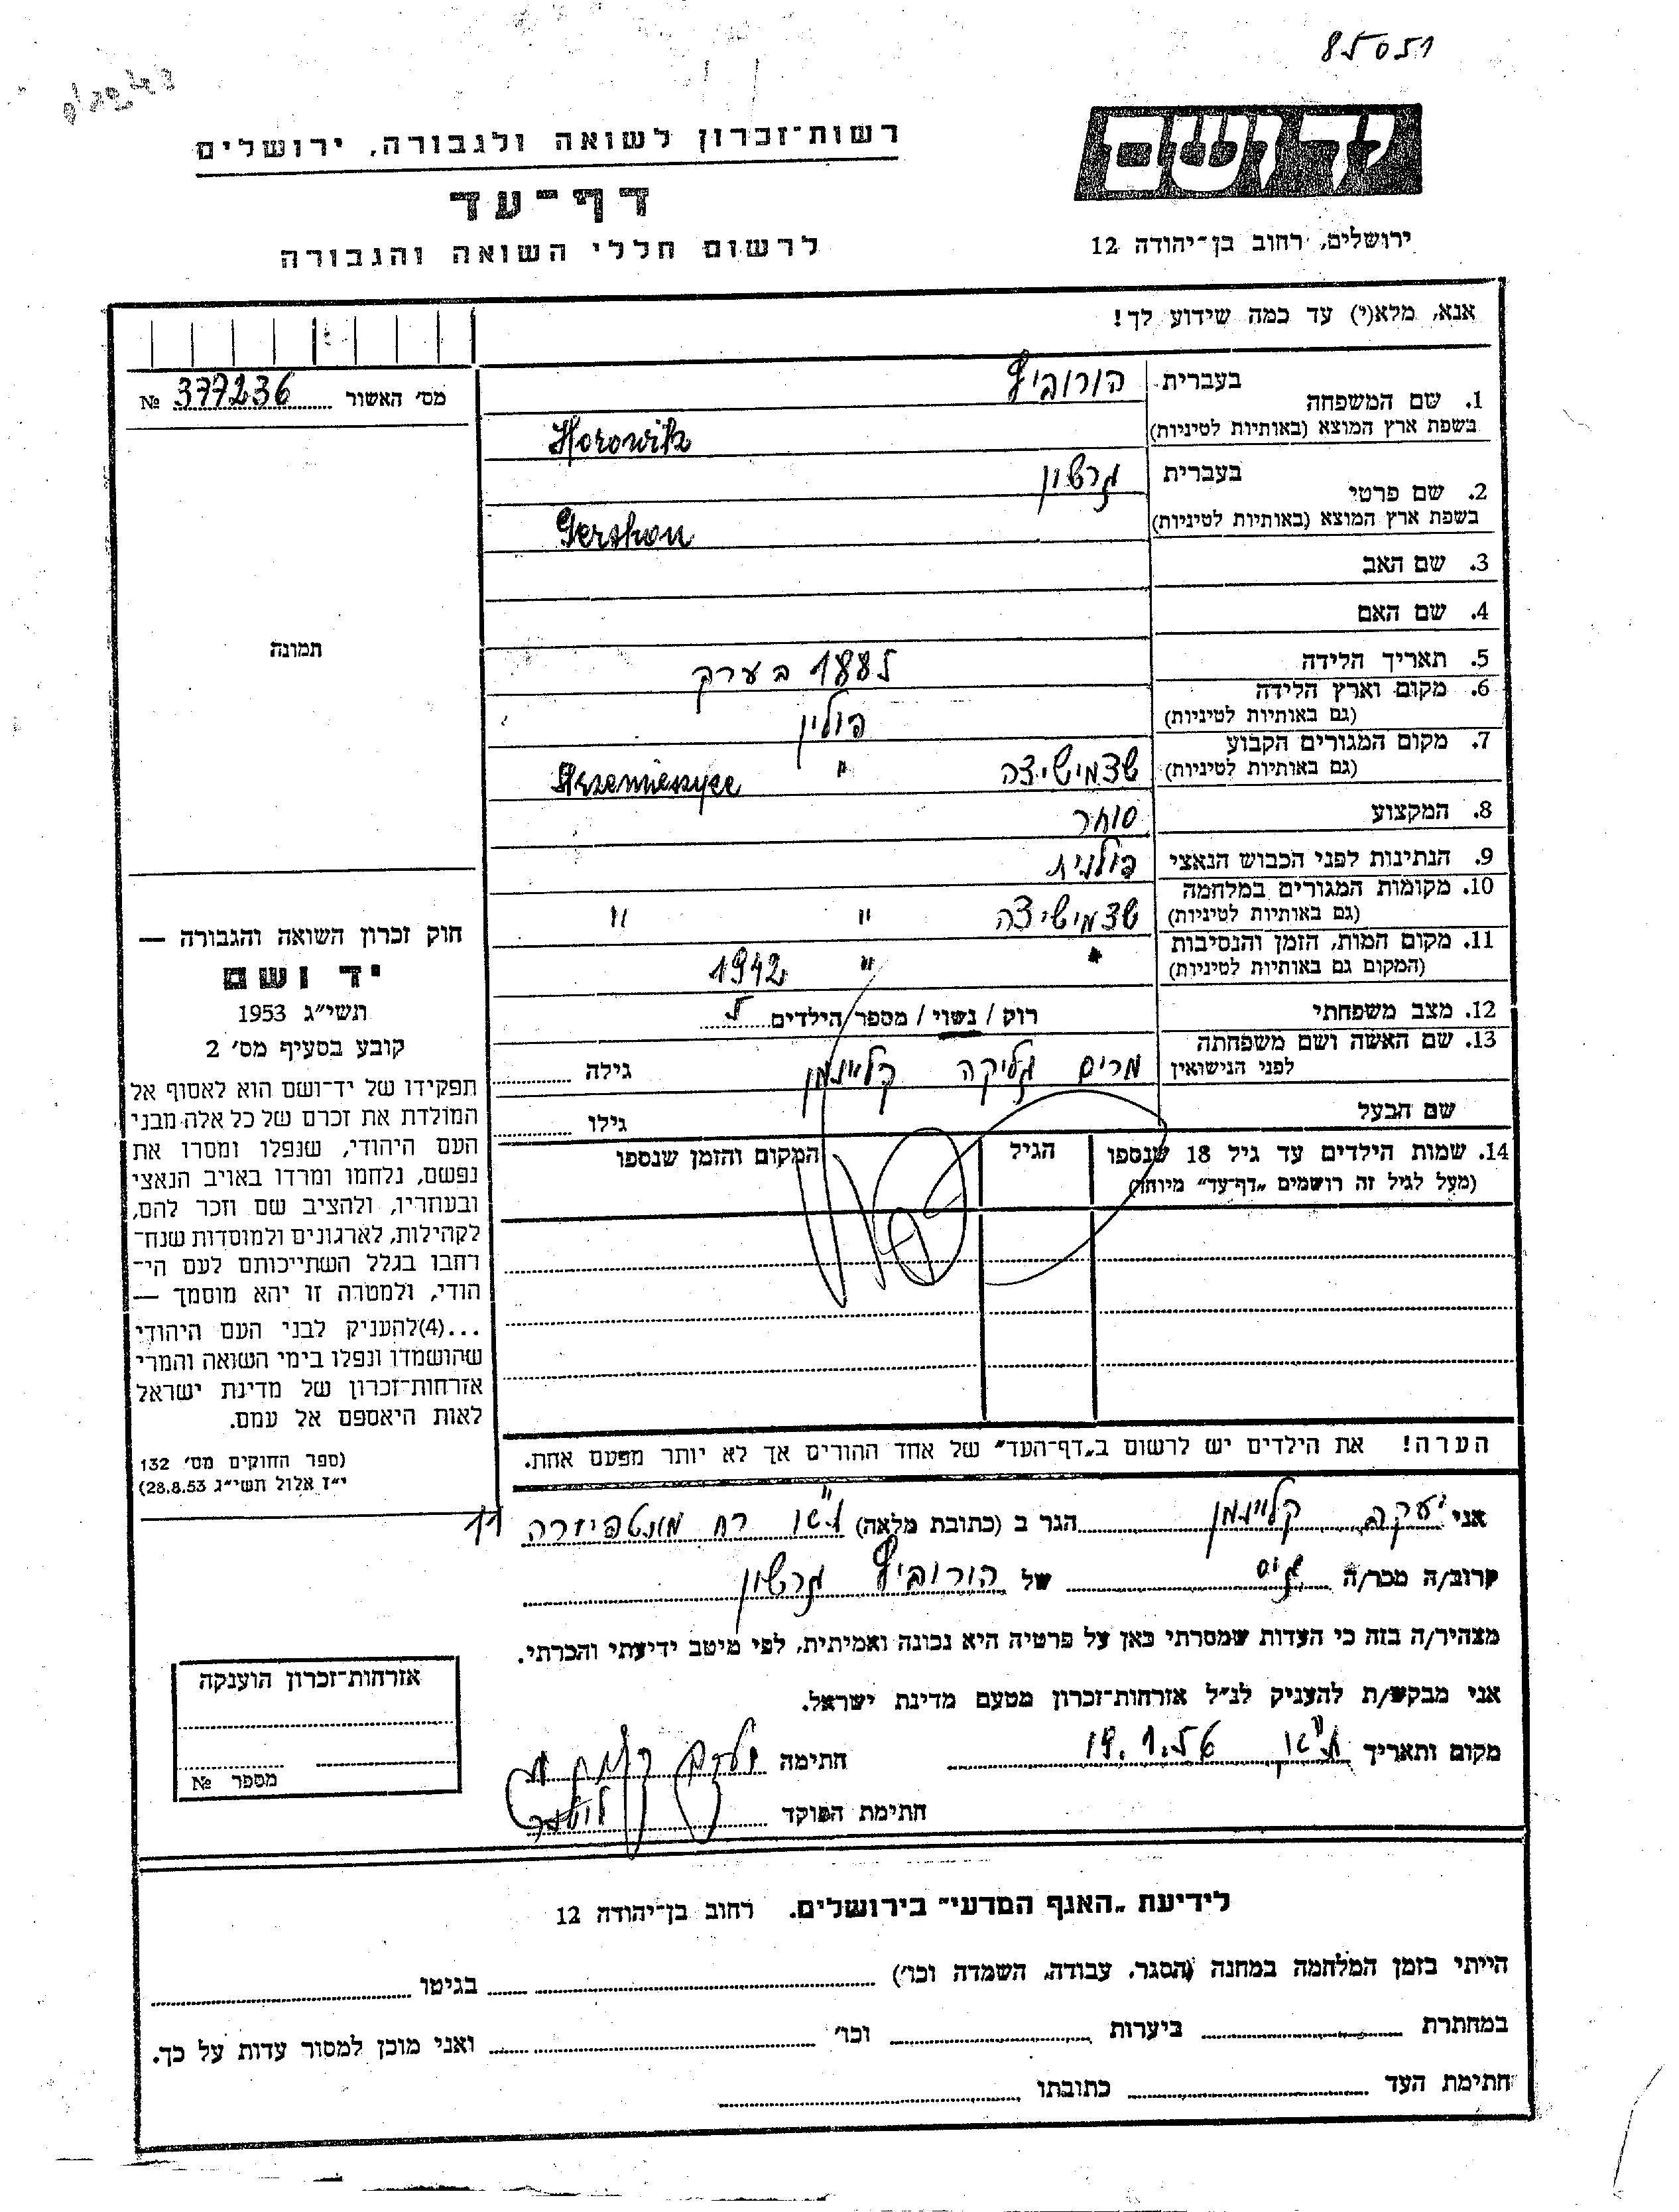 85051
יד ושם
רשות־זכרון לשואה ולגבורה, ירושלים
דף־עד
לרשום חללי השואה והגבורה
ירושלים, רחוב בן־יהודה 12
אנא, מלא(י) עד כמה שידוע לך!
מס׳ האשור № 377236
תמונה
1. שם המשפחה בעברית הורוביץ
בשפת ארץ המוצא (באותיות לטיניות) Horowitz
2. שם פרטי בעברית גרשון
בשפת ארץ המוצא (באותיות לטיניות) Gershon
3. שם האב
4. שם האם
5. תאריך הלידה 1885 בערך
6. מקום וארץ הלידה
(גם באותיות לטיניות) פולין
7. מקום המגורים הקבוע
(גם באותיות לטיניות) שצמישיצה "
8. המקצוע סוחר
9. הנתינות לפני הכבוש הנאצי פולנית
10. מקומות המגורים במלחמה
(גם באותיות לטיניות) שצמישיצה " "
11. מקום המות, הזמן והנסיבות
(המקום גם באותיות לטיניות) " " 1942
12. מצב משפחתי רוק / נשוי / מספר הילדים 5
13. שם האשה ושם משפחתה
לפני הנישואין מרים קליינמן גילה
שם הבעל גילו
14. שמות הילדים עד גיל 18 שנספו הגיל המקום והזמן שנספו
(מעל לגיל זה רושמים „דף־עד” מיוחד)
הערה! את הילדים יש לרשום ב„דף־העד” של אחד ההורים אך לא יותר מפעם אחת.
חוק זכרון השואה והגבורה —
יד ושם
תשי״ג 1953
קובע בסעיף מס׳ 2
תפקידו של יד־ושם הוא לאסוף אל
המולדת את זכרם של כל אלה מבני
העם היהודי, שנפלו ומסרו את
נפשם, נלחמו ומרדו באויב הנאצי
ובעוזריו, ולהציב שם וזכר להם,
לקהילות, לארגונים ולמוסדות שנח־
רבו בגלל השתייכותם לעם הי־
הודי, ולמטרה זו יהא מוסמך —
...(4)להעניק לבני העם היהודי
שהושמדו ונפלו בימי השואה והמרי
אזרחות־זכרון של מדינת ישראל
לאות היאספם אל עמם.
(ספר החוקים מס׳ 132
י״ז אלול תשי״ג 28.8.53)
אני יעקב קליינמן הגר ב (כתובת מלאה) ת"א רח מונטפיורה 11
קרוב/ה מכר/ה גיס של הורוביץ גרשון
מצהיר/ה בזה כי העדות שמסרתי כאן על פרטיה היא נכונה ואמיתית, לפי מיטב ידיעתי והכרתי.
אני מבקש/ת להעניק לנ״ל אזרחות־זכרון מטעם מדינת ישראל.
מקום ותאריך ת"א 19.1.56 חתימה
חתימת הפוקד
אזרחות־זכרון הוענקה
מספר №
לידיעת „האגף המדעי” בירושלים. רחוב בן־יהודה 12
הייתי בזמן המלחמה במחנה (הסגר, עבודה, השמדה וכו׳) בגיטו
במחתרת ביערות וכו׳ ואני מוכן למסור עדות על כך.
חתימת העד כתובתו